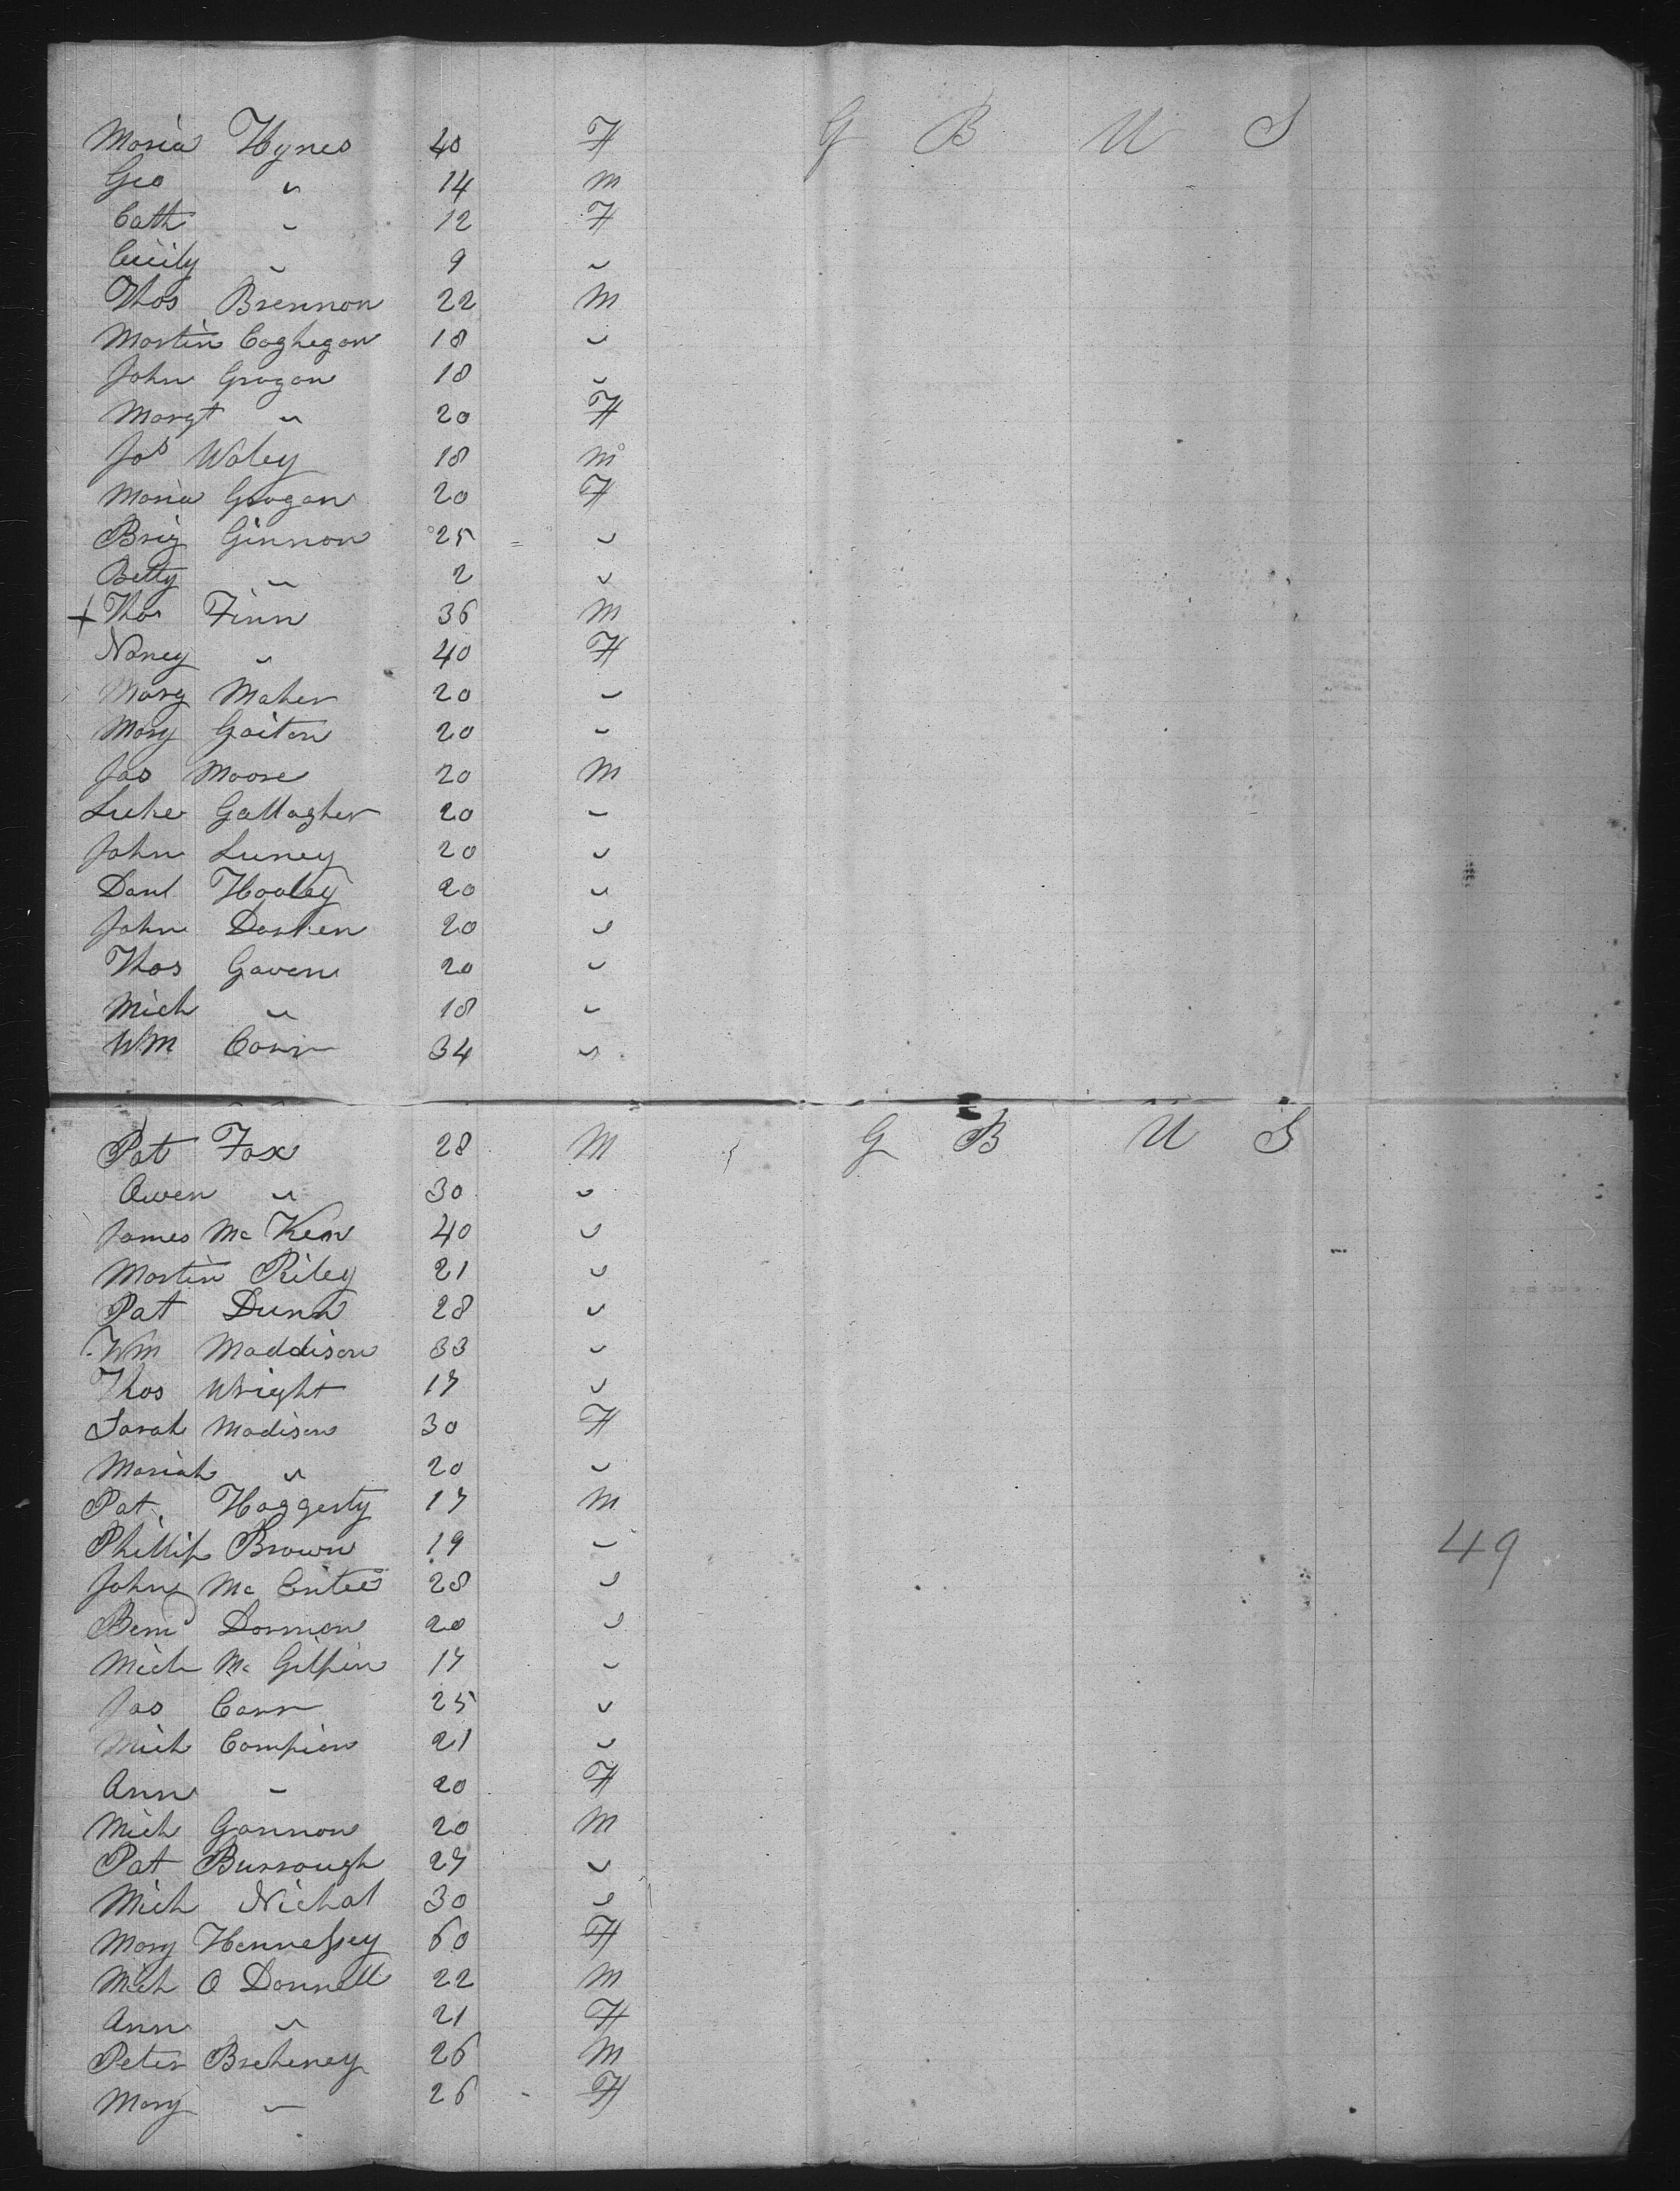 Maria Hynes 40 F G B U S
Geo " 14 M
Cath " 12 F
Cicily " 9 "
Thos Brennan 22 M
Martin Coghegan 18 "
John Grogan 18 "
Margt " 20 F
Jas Waley 18 M
Maria Grogan 20 F
Brig Ginnon 25 "
Betty " 2 "
+ Thos Finn 36 M
Nancy " 40 F
Mary Maher 20 "
Mary Gaiton 20 "
Jas Moore 20 M
Luke Gallagher 20 "
John Luney 20 "
Danl Hooley 20 "
John 20 "
Thos Gaven 20 "
Mich " 18 "
Wm Carr 34 "
Pat Fox 28 M G B U S
Owen " 30 "
James Mc Ken 40 "
Martin Riley 21 "
Pat Dunn 28 "
Wm Maddison 33 "
Thos Wright 17 "
Sarah Madison 30 F
Mariah " 20 "
Pat Haggerty 17 M
Phillip Brown 19 " 49
John Mc Entee 28 "
Bernd Dornion 20 "
Mich Mc Gilpin 17 "
Jas Carr 25 "
Mich Campion 21 "
Ann " 20 F
Mich Gannon 20 M
Pat Burrough 27 "
Mich Nichol 30 "
Mary Hennessey 60 F
Mich O Donnell 22 M
Ann " 21 F
Peter Breheney 26 M
Mary " 26 F